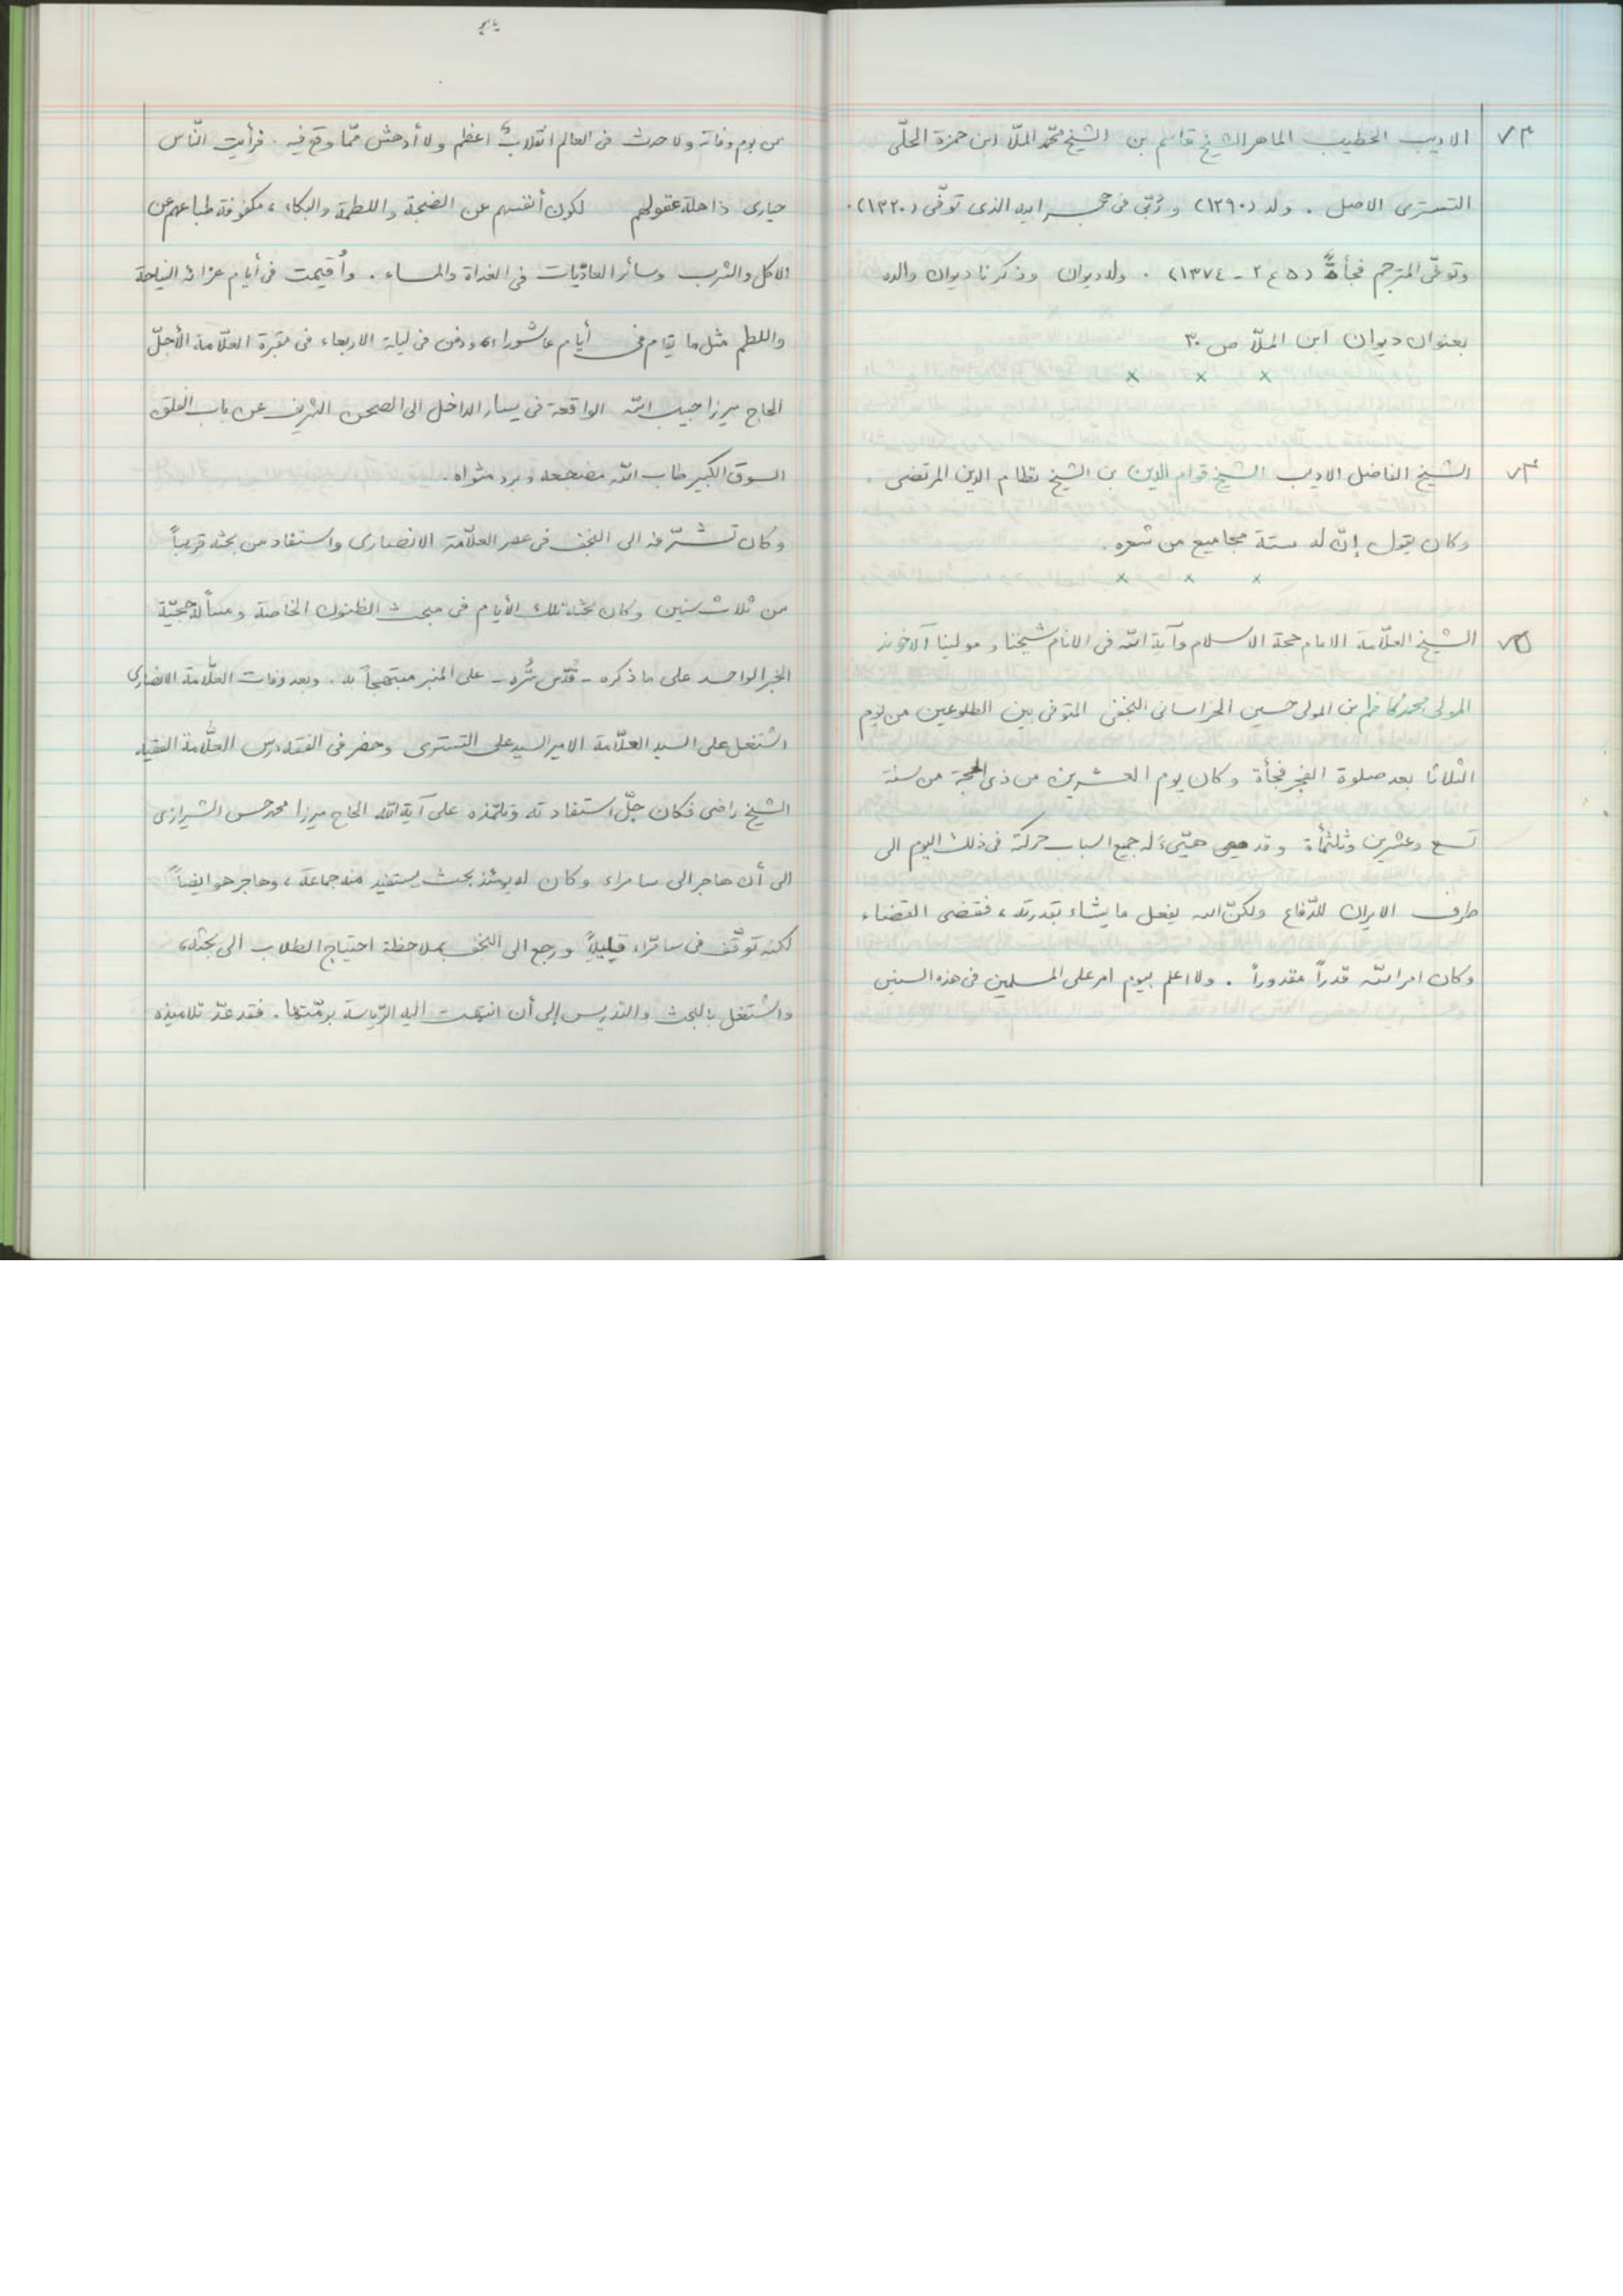 ٧٣ الاديب الخطيب الماهر الشيخ قاسم بن الشيخ محمّد الملّا ابن حمزة الحلّى
التستري الاصل . ولد (١٢٩٠) ورُبّى فى حجر ابيه الذى توفّى (١٣٢٠) .
وتوفّى المترجم فجأةً (٥ ع ٢ ـ ١٣٧٤) . وله ديوان وذكرنا ديوان والده
بعنوان ديوان ابن الملّا ص ٣٠
× × ×
٧٤ الشيخ الفاضل الاديب الشيخ قوام الدين بن الشيخ نظام الدين المرتضى .
وكان يقول إنّ له ستة مجاميع من شعره .
× × ×
٧٥ الشيخ العلّامة الامام حجة الاسلام وآية اللّه فى الانام شيخنا ومولينا آلاخوند
المولى محمد كاظم بن المولى حسين الخراسانى النجفى المتوفى بين الطلوعين من يوم
الثلاثا بعد صلوة الفجر فجأة وكان يوم العشرين من ذى الحجة من سنة
تسع وعشرين وثلثمأة وقد هيّىءَ له جميع اسباب حركته فى ذلك اليوم الى
طرف الايران للدّفاع ولكنّ الله يفعل ما يشاء بقدرته ، فقضى القضاء
وكان امر اللّه قدراً مقدوراً . ولا اعلم بيوم امر على المسلمين فى هذه السنين
من يوم وفاته ولا حدث فى العالم انقلابٌ اعظم ولا أدهش ممّا وقع فيه . فرأيت النّاس
حيارى ذاهلة عقولهم لكون أنفسهم عن الضجة واللطمة والبكاء ، مكفوفة طباعهم عن
الاكل والشرب وسائر العاديّات فى الغداة والمساء . وأُقيمت فى أيام عزائه النياحة
واللطم مثل ما يقام فى أيام عاشوراء ، ودفن فى ليلة الاربعاء فى مقبرة العلّامة الأجلّ
الحاج ميرزا حبيب اللّه الواقعة فى يسار الداخل الى الصحن الشريف عن باب
السوق الكبير طاب اللّه مضجعه وبرد مثواه .
وكان تشرّفه الى النجف فى عصر العلّامة الانصارى واستفاد من بحثه قريباً
من ثلاث سنين وكان بحثه تلك الأيام فى مبحث الظنون الخاصة ومسألة حجيّة
الخبر الواحد على ما ذكره ـ قُدّس سُّره ـ على المنبر مبتهجاً به . وبعد وفات العلّامة الانصارى
اشتغل على السيد العلّامة الامير السيد على التستري وحضر فى الفقه درس العلّامة الفقيه
الشيخ راضى فكان جلّ استفادته وتلمّذه على آية الله الحاج ميرزا محمد حسن الشيرازى
الى أن هاجر الى سامراء وكان له يومئذ بحث يستفيد منه جماعة ، وهاجر هو ايضاً
لكنه توقّف فى سامرّاء قليلاً ورجع الى النجف بملاحظة احتياج الطلاب الى بحثه ،
واشتغل بالبحث والتدريس إلى أن انتهت اليه الرّياسة برمّتها . فقد عدّ تلاميذه